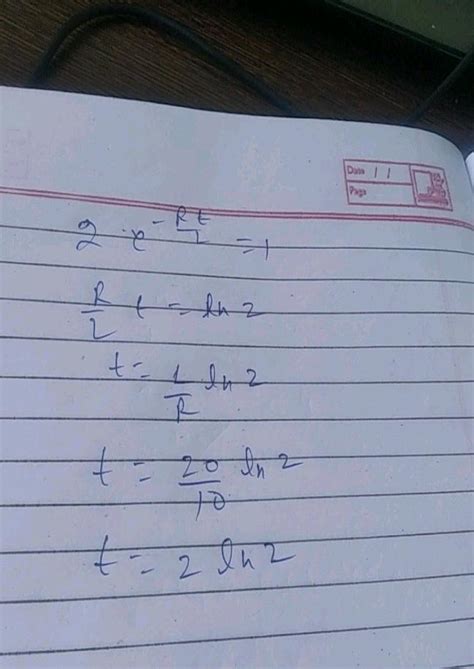 Date 11
Page
2 e^{-Rt/L} = 1
R/L t = ln 2
t = L/R ln 2
t = 20/10 ln 2
t = 2 ln 2